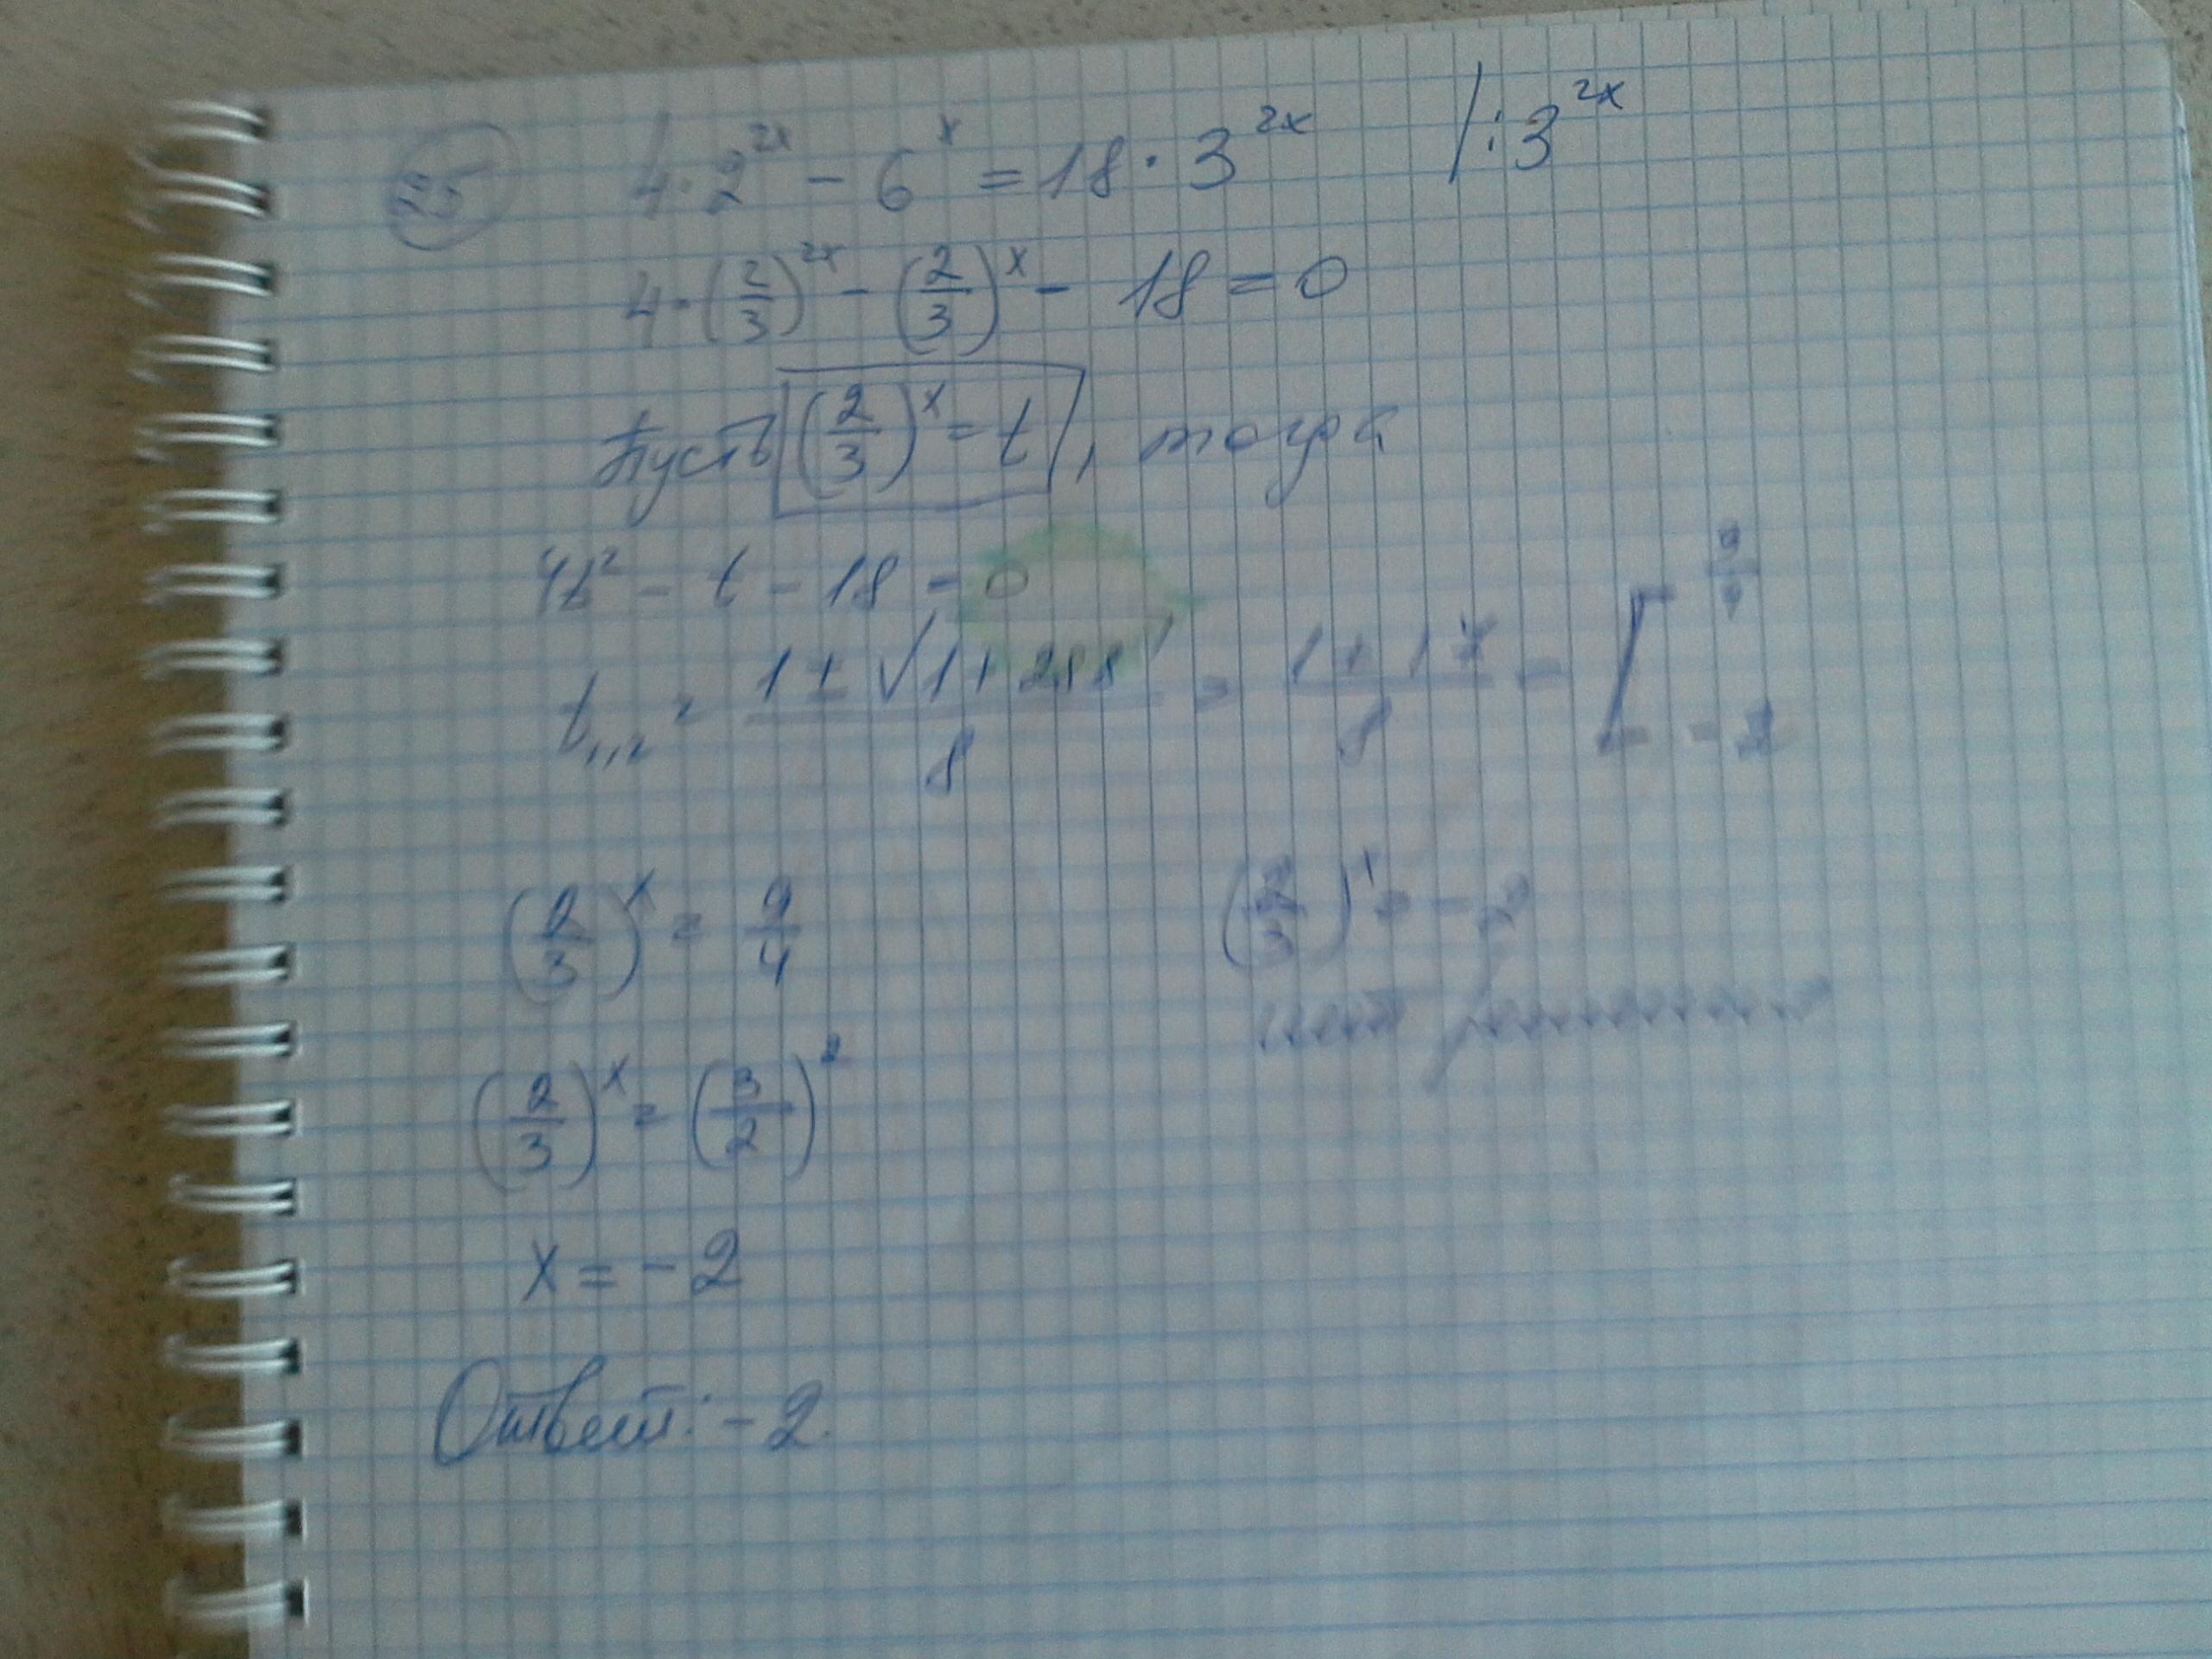 25 4·2^{2x} - 6^x = 18·3^{2x} /:3^{2x}
4·(2/3)^{2x} - (2/3)^x - 18 = 0
Пусть (2/3)^x = t, тогда
4t² - t - 18 = 0
t_{1,2} = (1 ± √(1+288))/8 = (1 ± 17)/8 = [ 9/4
-2
(2/3)^x = 9/4 (2/3)^x = -2
нет решений
(2/3)^x = (3/2)^2
x = -2
Ответ: -2.